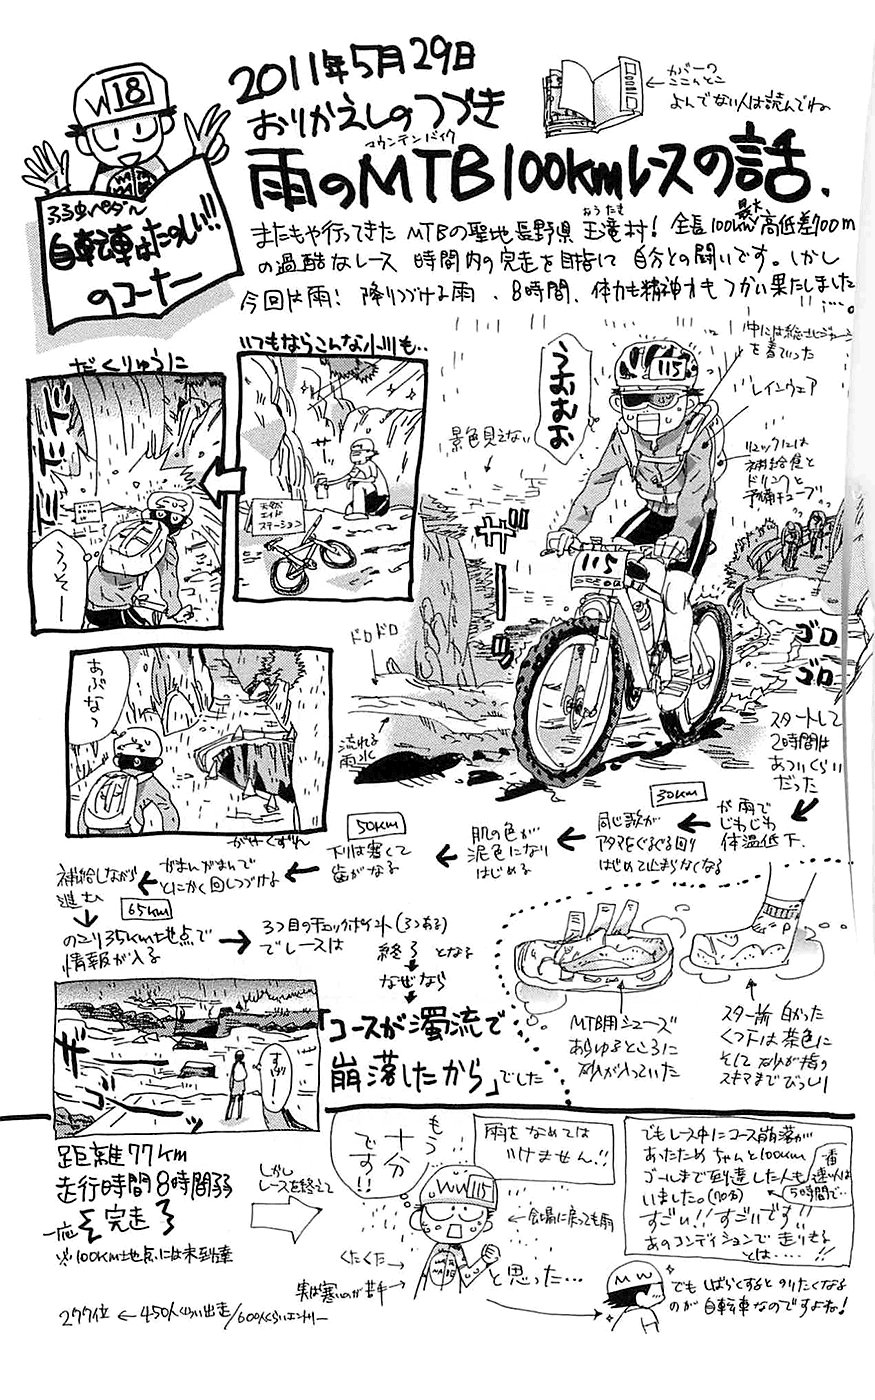 2011年5月29日
おりかえしのつづき
マウンテンバイク
雨のMTB100kmレースの話、
よんでない人は読んでね
W18
弱虫ペダル
自転車はたのしい!!
のコーナー
またもや行ってきた MTBの聖地長野県 王滝村! 全長100km 最大高低差700m
おうたき
の過酷なレース 時間内の完走を目指して 自分との闘いです。しかし
今回は雨! 降りつづける雨、8時間、体力も精神力もつかい果たしました
いつもならこんな小川も..
天然
エイド
ステーション
だくりゅうに
ドドドド
うっそー
あぶなっ
がけくずれ
景色見えない
うおむむお
115
115
中には総北ジャージ
を着ていった
レインウェア
リュックには
補給食と
ドリンクと
予備チューブ
ゴロ
ゴロ
ドロドロ
流れる
雨水
スタートして
2時間は
あついくらい
だった
が雨で
じわじわ
体温低下、
30km
同じ歌が
アタマをぐるぐる回り
はじめて止まらなくなる
肌の色が
泥色になり
はじめる
50km
下りは寒くて
歯がなる
がまんがまんで
とにかく回しつづける
補給しながら
進む
65km
のこり35km地点で
情報が入る
3つ目のチェックポイント(3つある)
でレースは
終了となる
なぜなら
「コースが濁流で
崩落したから」でした
MTB用シューズ
あらゆるところに
砂が入っていた
スタート前 白かった
くつ下は茶色に
そして砂が指の
スキマまでびっしり
距離77km
走行時間8時間弱
一応完走
※100km地点には未到達
277位 ← 450人くらい出走/600人くらいエントリー
しかし
レースを終えて
もう
十分
です!!
WW115
雨をなめては
いけません!!
会場に戻っても雨
くたくた
実は寒いのが苦手
と思った…
でもレース中にコース崩落が
あったため ちゃんと100km
ゴールまで到達した人も
いました。(70分)
一番
速い人は
5時間で…
すごい!! すごいです!!
あのコンディションで走りきる
とは……!!
MW
でも しばらくすると のりたくなる
のが 自転車なのですよね!